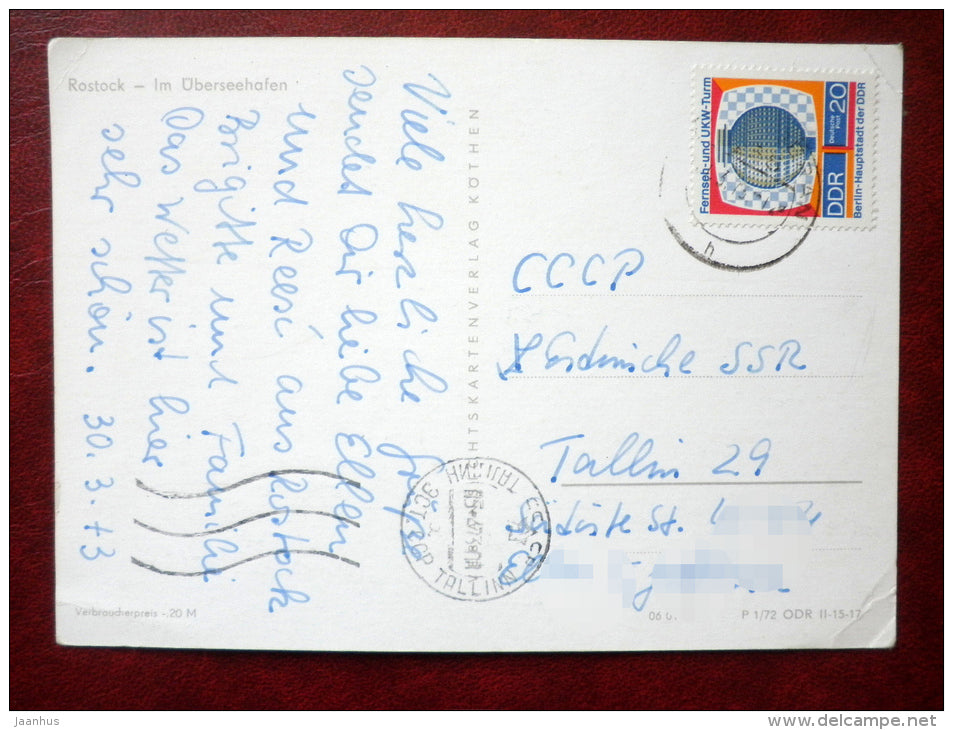 Rostock – Im Überseehafen
Viele herzliche Grüße
sendet Dir liebe Ellen
und Reesi aus Rostock
Brigitte und Familie
Das Wetter ist hier
sehr schön. 30.3.73
Verbraucherpreis -,20 M
KÖTHEN
Fernseh-und UKW-Turm
Deutsche Post 20
DDR
Berlin-Hauptstadt der DDR
CCCP
Estnische SSR
Tallin 29
St.
TALLINN
P 1/72 ODR II-15-17
Jaanhus
www.delcampe.net